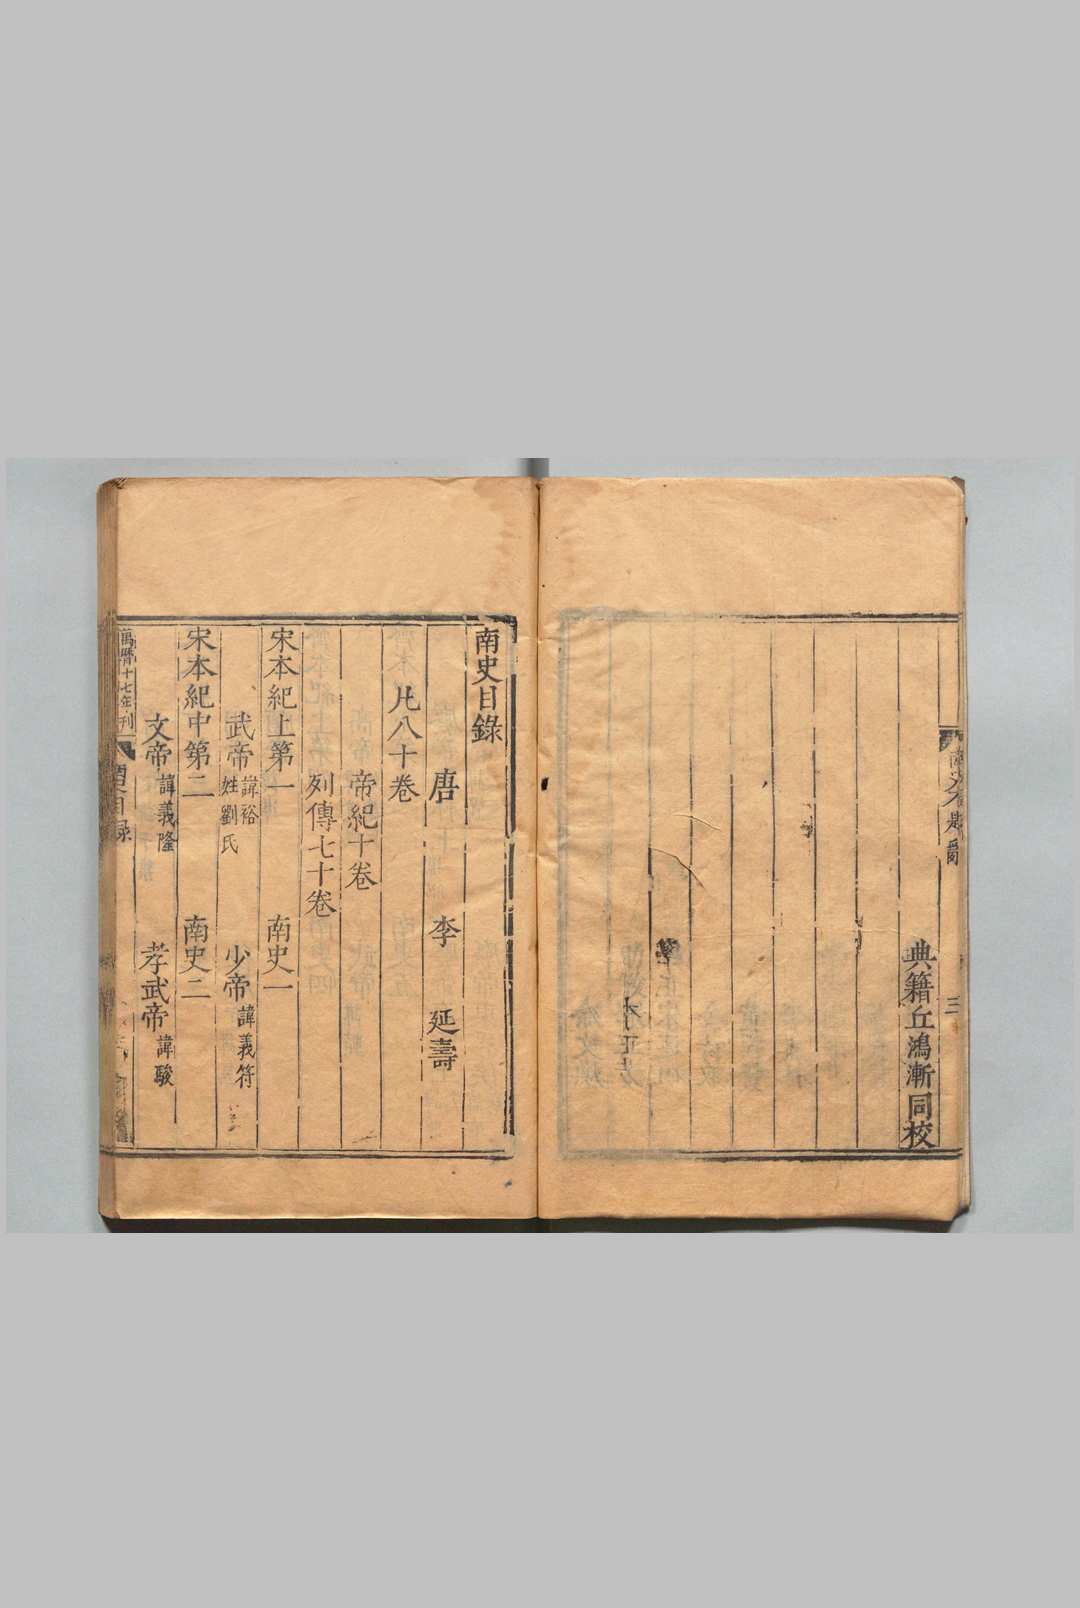 典籍丘鴻漸同校
三
南史目錄
唐 李 延壽
凡八十卷
帝紀十卷
列傳七十卷
宋本紀上第一 南史一
武帝 諱裕 姓劉氏 少帝 諱義符
宋本紀中第二 南史二
文帝 諱義隆 孝武帝 諱駿
萬曆十七年刊